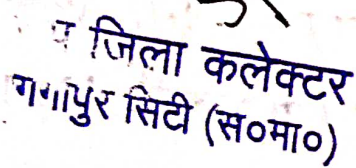 जिला कलेक्टर
गंगापुर सिटी (स०मा०)